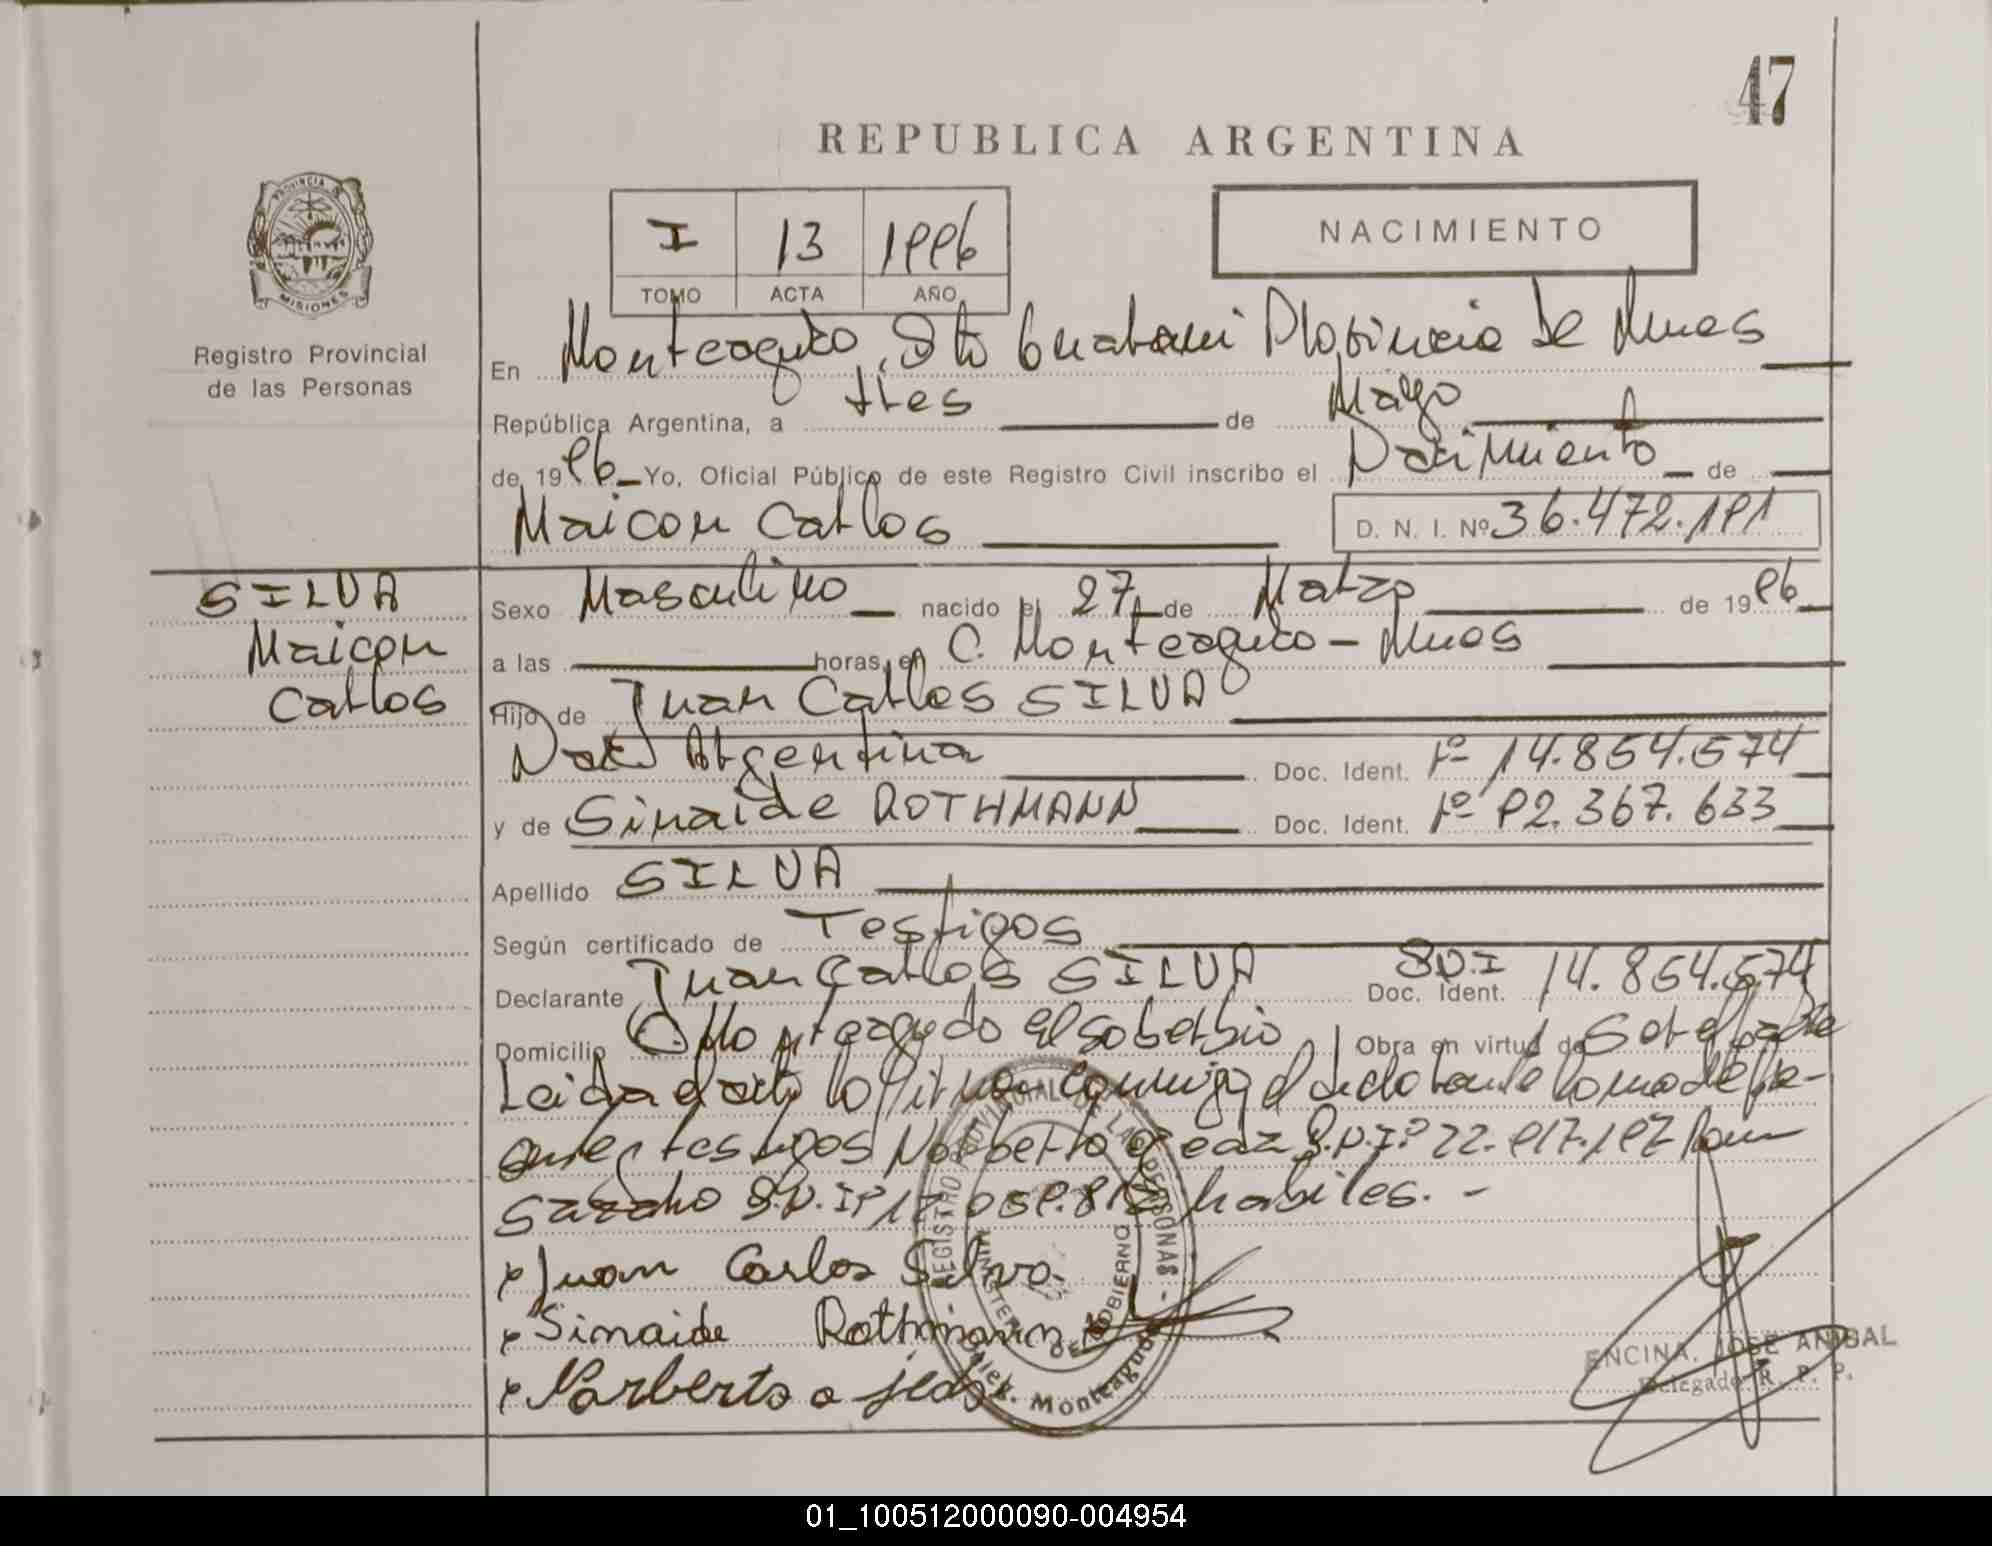 47
REPUBLICA ARGENTINA
PROVINCIA DE
MISIONES
Registro Provincial
de las Personas
I 13 1996
TOMO ACTA AÑO
NACIMIENTO
En Monteagudo, Dto Guarani Provincia de Mnes
República Argentina, a tres de Mayo
de 1996 Yo, Oficial Público de este Registro Civil inscribo el Nacimiento de
Maicon Carlos D. N. I. Nº 36.472.191
SILVA
Maicon
Carlos
Sexo Masculino nacido el 27 de Marzo de 1996
a las horas, en C. Monteagudo - Mnes
Hijo de Juan Carlos SILVA
Nac. Argentina Doc. Ident. Nº 14.854.574
y de Sinaide ROTHMANN Doc. Ident. Nº 92.367.633
Apellido SILVA
Según certificado de Testigos
Declarante Juan Carlos SILVA Doc. Ident. DNI 14.854.574
Domicilio C. Monteagudo El Soberbio Obra en virtud de Ser el padre
Leida el acta la firman conmigo el declarante la madre
testigos Norberto D.N.I. 22.917.197
D.N.I. habiles. -
x Juan Carlos Silva
x Sinaide Rothmann
x Norberto
REGISTRO PROVINCIAL DE LAS PERSONAS
MINISTERIO DE GOBIERNO
Deleg. Monteagudo
ENCINA, JOSE ANIBAL
Delegado R. P. P.
01_100512000090-004954